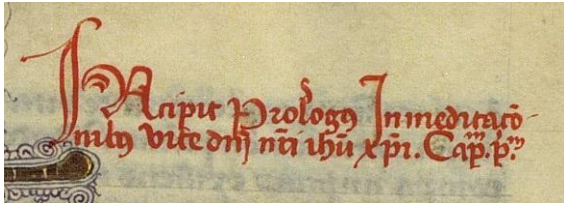 INcipit Prologꝰ In meditac̄o
nibꝫ vite dn̄i nr̄i ihū xp̄i. Cap̄m. p̄m.